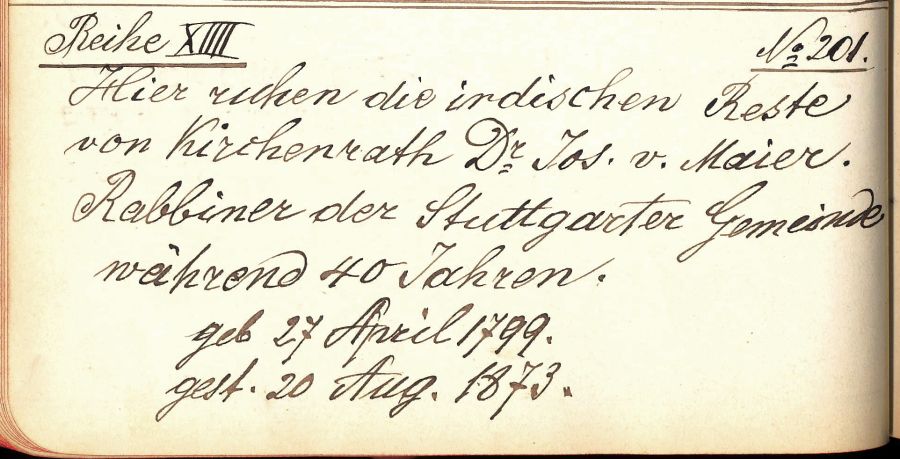 Reihe XIIII
No 201.
Hier ruhen die irdischen Reste
von Kirchenrath Dr Jos. v. Maier.
Rabbiner der Stuttgarter Gemeinde
während 40 Jahren.
geb 27 April 1799.
gest. 20 Aug. 1873.